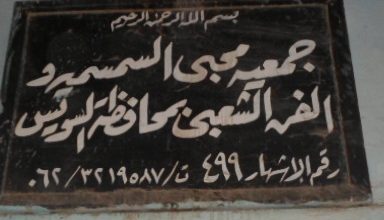 بسم الله الرحمن الرحيم
جمعية محبى السمسمية و
الفن الشعبى بمحافظة السويس
رقم الإشهار ٤٩٩ ت/٠٦٢/٣٢١٩٥٨٧